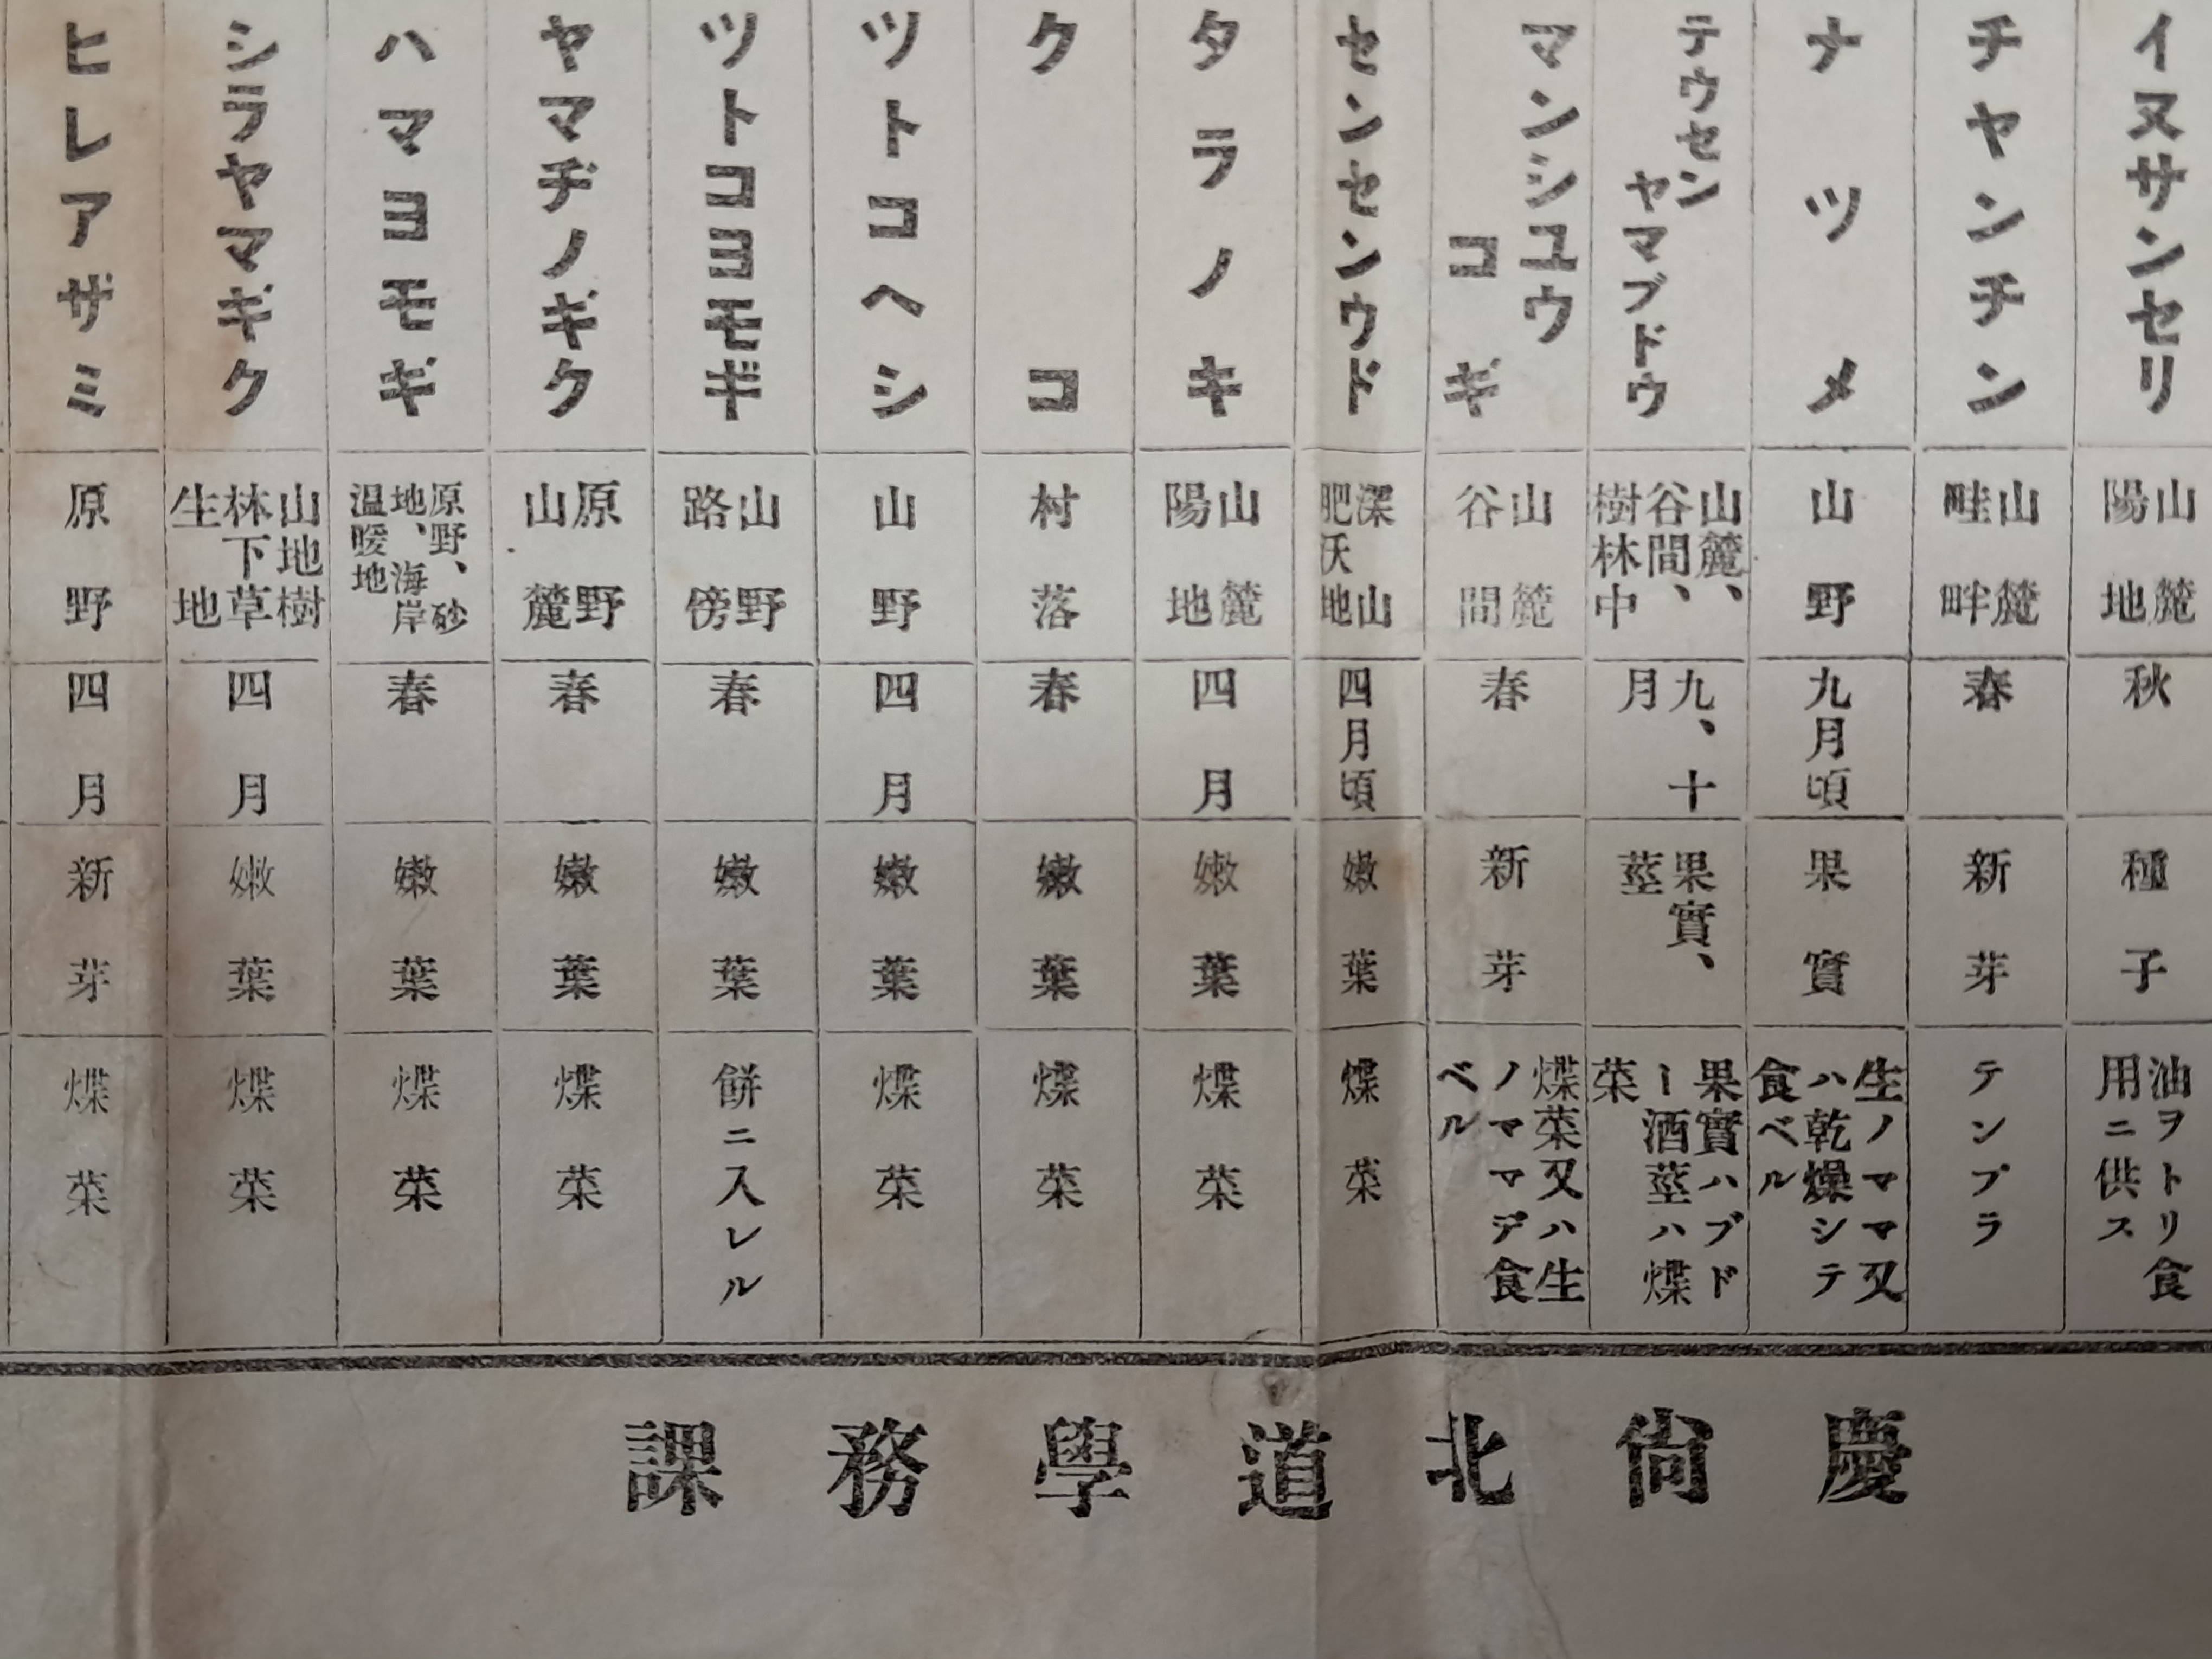 イヌサンセリ
山麓
陽地
秋
種子
油ヲトリ食
用ニ供ス
チヤンチン
山麓
畦畔
春
新芽
テンプラ
ナツメ
山野
九月頃
果實
生ノママ又
ハ乾燥シテ
食ベル
テウセン
ヤマブドウ
山麓、
谷間、
樹林中
九、十
月
果實、
莖
果實ハブド
ー酒莖ハ煠
菜
マンシユウ
コギ
山麓
谷間
春
新芽
煠菜又ハ生
ノママデ食
ベル
センセンウド
深山
肥沃地
四月頃
嫩葉
煠菜
タラノキ
山麓
陽地
四月
嫩葉
煠菜
クコ
村落
春
嫩葉
煠菜
ツトコヘシ
山野
四月
嫩葉
煠菜
ツトコヨモギ
山野
路傍
春
嫩葉
餅ニ入レル
ヤマヂノギク
原野
山麓
春
嫩葉
煠菜
ハマヨモギ
原野、砂
地、海岸
温暖地
春
嫩葉
煠菜
シラヤマギク
山地樹
林下草
生地
四月
嫩葉
煠菜
ヒレアザミ
原野
四月
新芽
煠菜
慶尙北道學務課